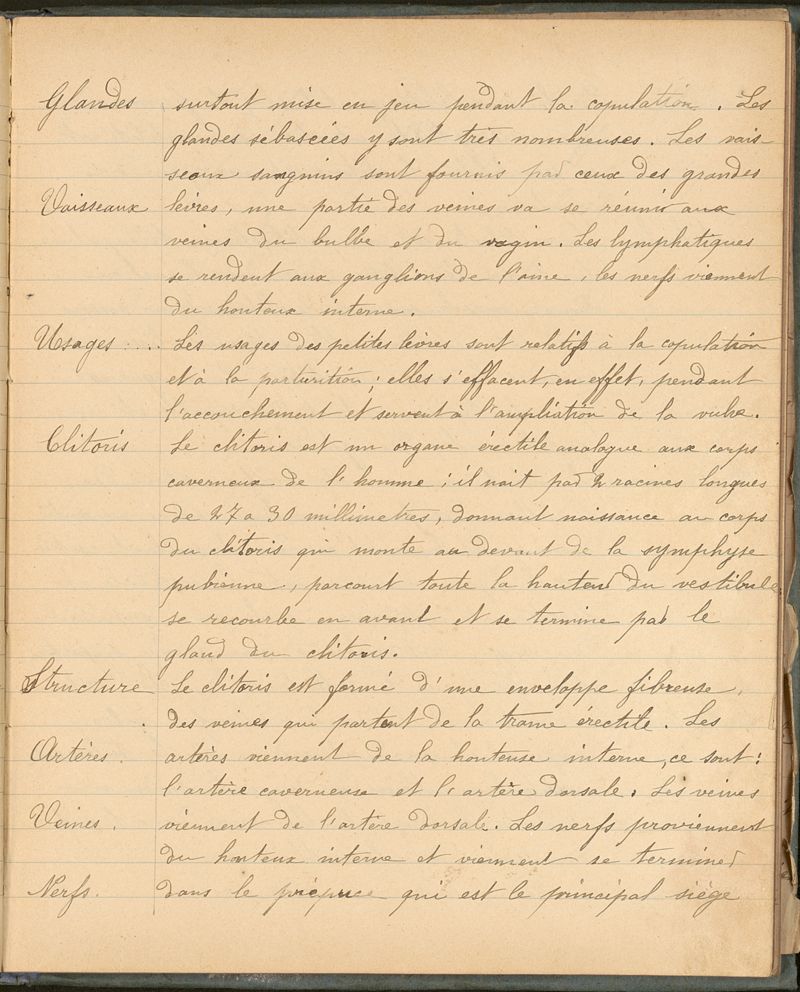 Glandes surtout mise en jeu pendant la copulation. Les
glandes sébacées y sont très nombreuses. Les vais-
seaux sanguins sont fournis par ceux des grandes
Vaisseaux lèvres, une partie des veines va se réunir aux
veines du bulbe et du vagin. Les lymphatiques
se rendent aux ganglions de l'aine, les nerfs viennent
du honteux interne.
Usages .... Les usages des petites lèvres sont relatifs à la copulation
et à la parturition; elles s'effacent, en effet, pendant
l'accouchement et servent à l'ampliation de la vulve.
Clitoris Le clitoris est un organe érectile analogue aux corps
caverneux de l'homme; il nait par 2 racines longues
de 27 a 30 millimetres, donnant naissance au corps
du clitoris qui monte au devant de la symphyse
pubienne, parcourt toute la hauteur du vestibule
se recourbe en avant et se termine par le
gland du clitoris.
Structure Le clitoris est formé d'une enveloppe fibreuse,
des veines qui partent de la trame érectile. Les
Artères. artères viennent de la honteuse interne, ce sont:
l'artère caverneuse et l'artère dorsale. Les veines
Veines. viennent de l'artère dorsale. Les nerfs proviennent
du honteux interne et viennent se terminer
Nerfs. dans le prépuce qui est le principal siège